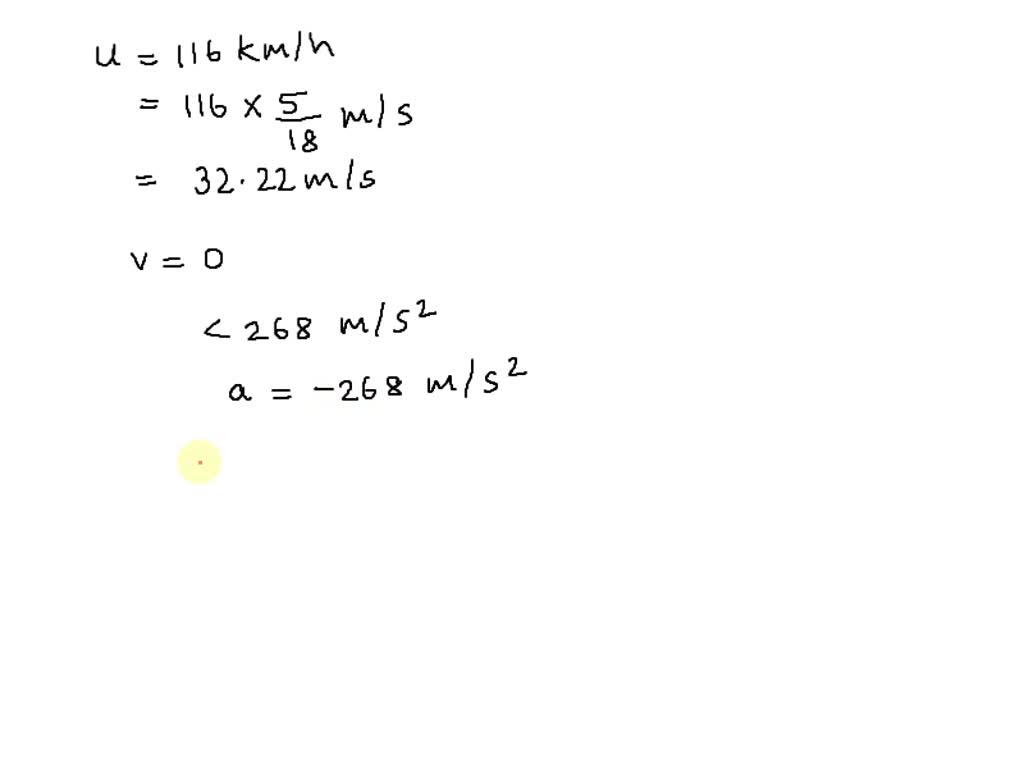 u = 116 km/h
= 116 × 5/18 m/s
= 32.22 m/s
v = 0
< 268 m/s²
a = -268 m/s²